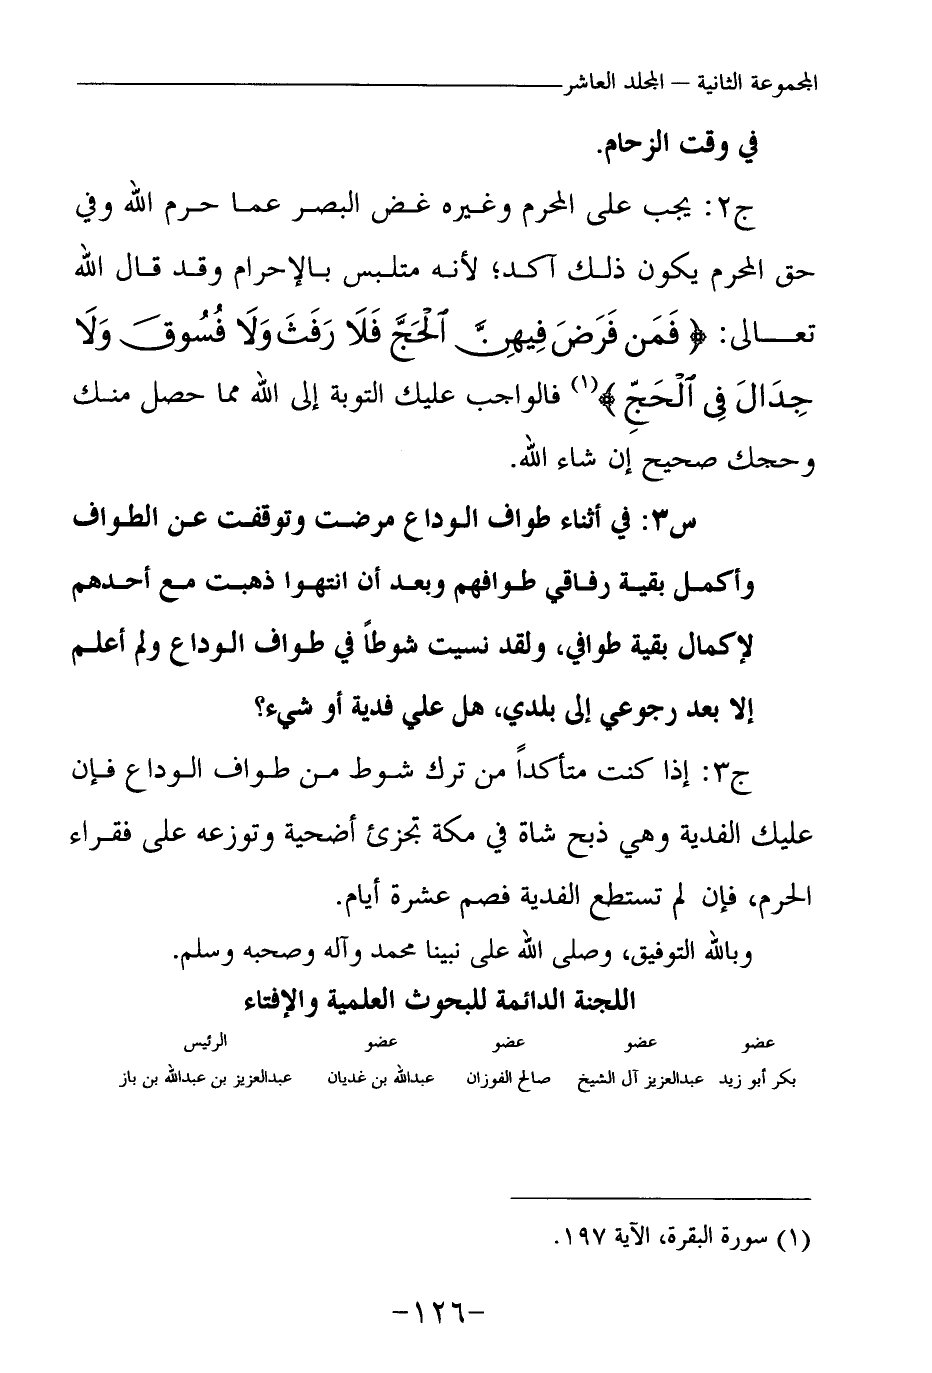 المجموعة الثانية – المجلد العاشر
في وقت الزحام.
ج٢: يجب على المحرم وغيره غض البصر عما حرم الله وفي
حق المحرم يكون ذلك آكد؛ لأنه متلبس بالإحرام وقد قال الله
تعالى: ﴿ فَمَن فَرَضَ فِيهِنَّ ٱلْحَجَّ فَلَا رَفَثَ وَلَا فُسُوقَ وَلَا
جِدَالَ فِى ٱلْحَجِّ ﴾(١) فالواجب عليك التوبة إلى الله مما حصل منك
وحجك صحيح إن شاء الله.
س٣: في أثناء طواف الوداع مرضت وتوقفت عن الطواف
وأكمل بقية رفاقي طوافهم وبعد أن انتهوا ذهبت مع أحدهم
لإكمال بقية طوافي، ولقد نسيت شوطاً في طواف الوداع ولم أعلم
إلا بعد رجوعي إلى بلدي، هل علي فدية أو شيء؟
ج٣: إذا كنت متأكداً من ترك شوط من طواف الوداع فإن
عليك الفدية وهي ذبح شاة في مكة تجزئ أضحية وتوزعه على فقراء
الحرم، فإن لم تستطع الفدية فصم عشرة أيام.
وبالله التوفيق، وصلى الله على نبينا محمد وآله وصحبه وسلم.
اللجنة الدائمة للبحوث العلمية والإفتاء
عضو عضو عضو عضو الرئيس
بكر أبو زيد عبدالعزيز آل الشيخ صالح الفوزان عبدالله بن غديان عبدالعزيز بن عبدالله بن باز
(١) سورة البقرة، الآية ١٩٧.
–١٢٦–